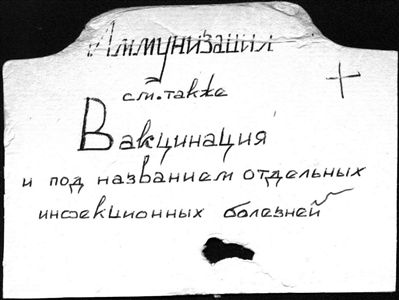 Иммунизация
см. также
Вакцинация
и под названием отдельных
инфекционных болезней